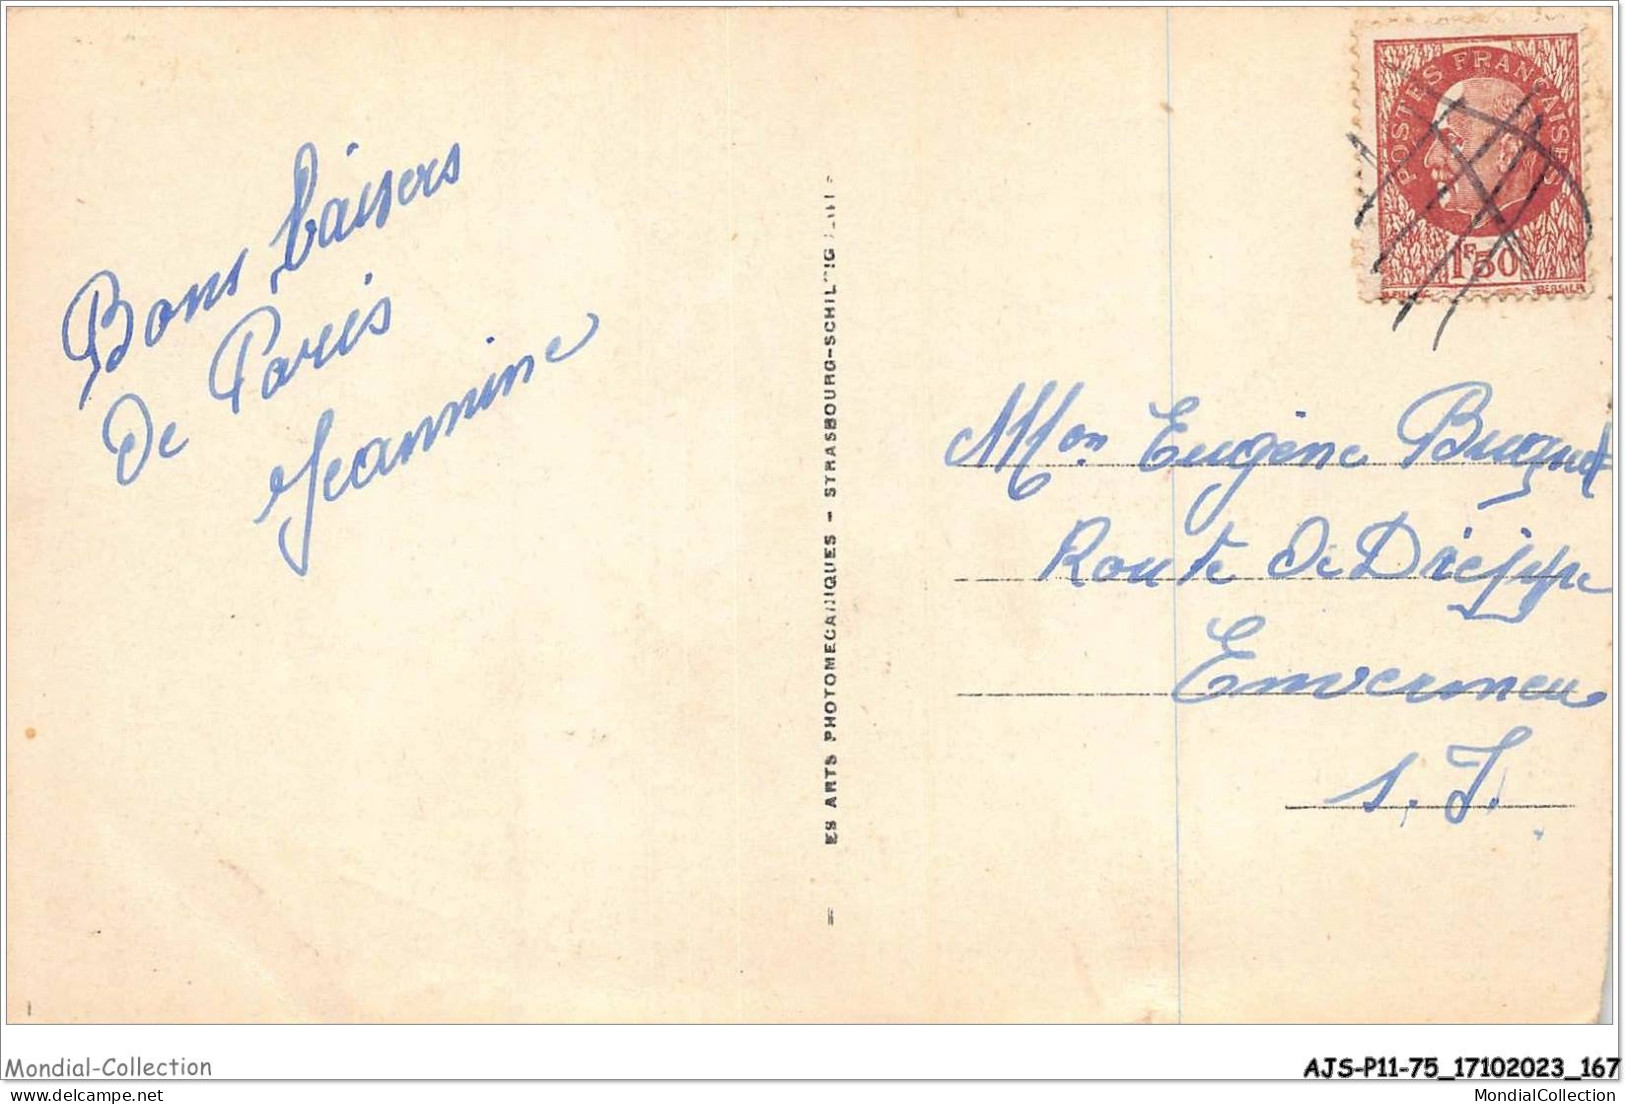 Bons baisers
de Paris
Jeannine
ES ARTS PHOTOMECANIQUES - STRASBOURG-SCHILTIG
POSTES FRANÇAISES
1F50
BERSIER
Mon Eugène
Route de Dieppe
Envermeu
S. I.
Mondial-Collection
AJS-P11-75_17102023_167
MondialCollection